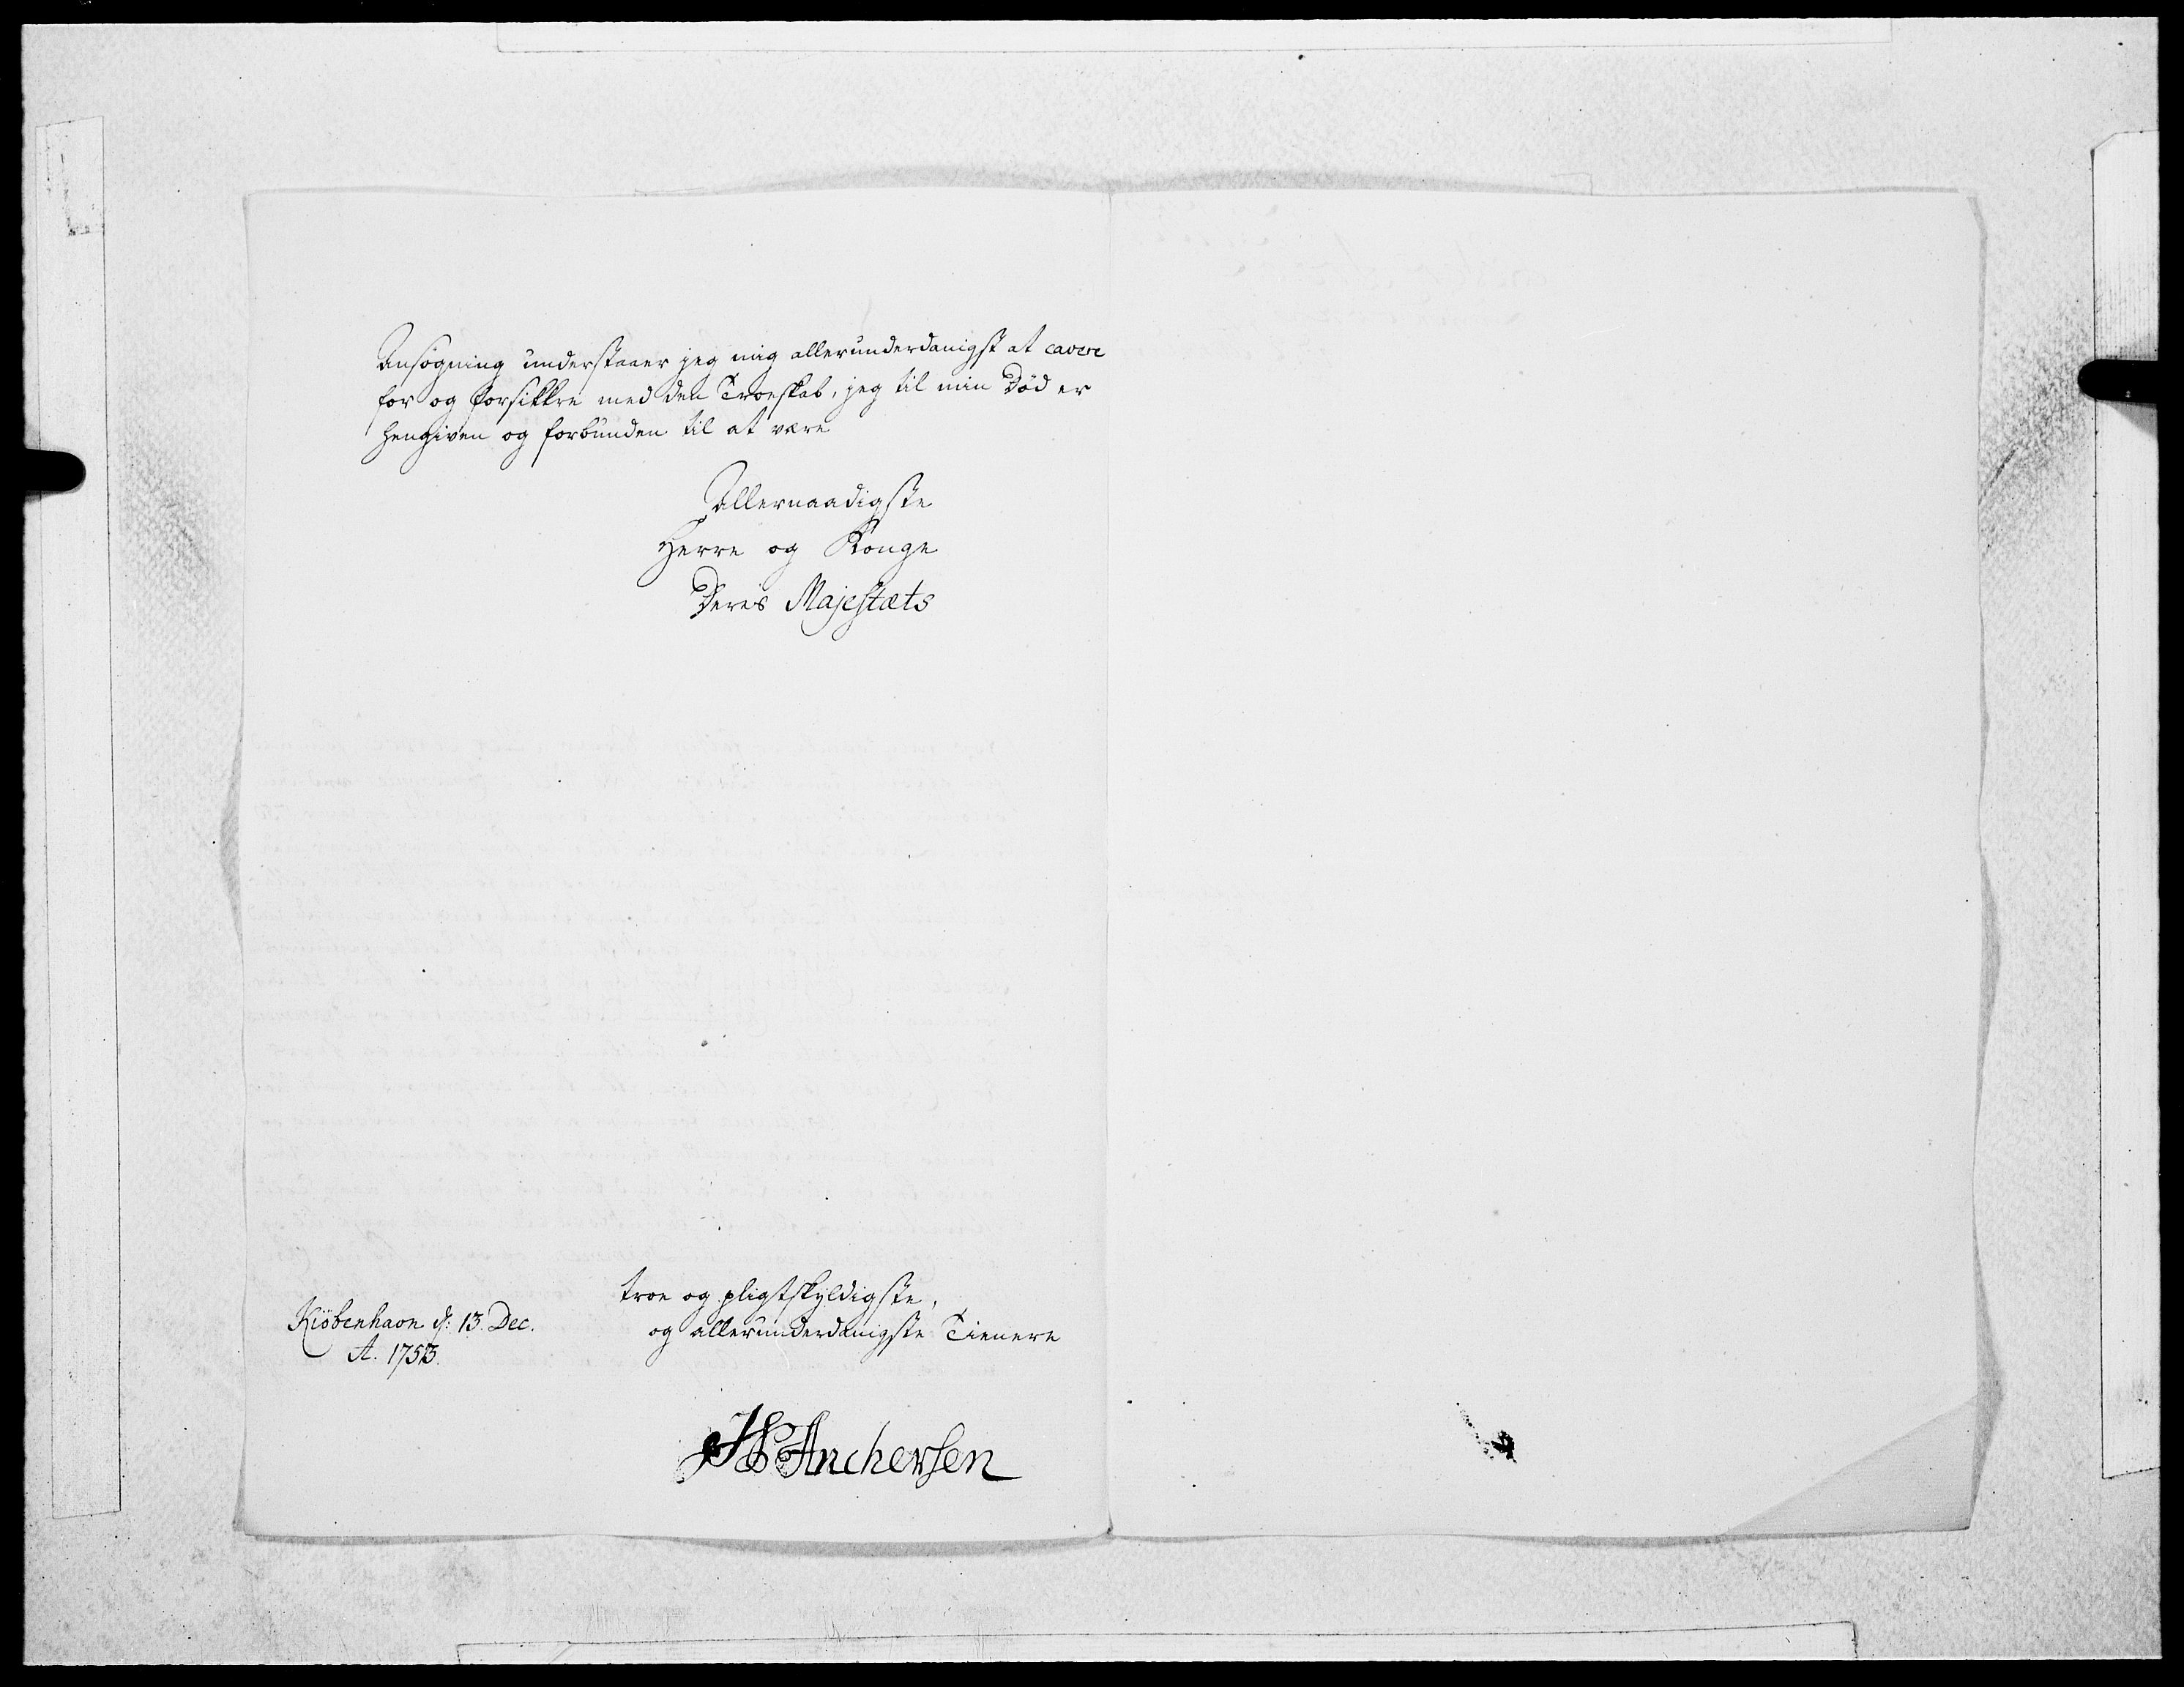 Ansøgning understaaer jeg mig allerunderdanigst at cavere
for og forsikkre med den Troeskab, jeg til min Død er
hengiven og forbunden til at være
Allernaadigste
Herre og Konge
Deres Majestæts
troe og pligtskyldigste,
og allerunderdanigste Tienere
Kiøbenhavn d: 13. Dec.
A. 1753.
HPAnchersen